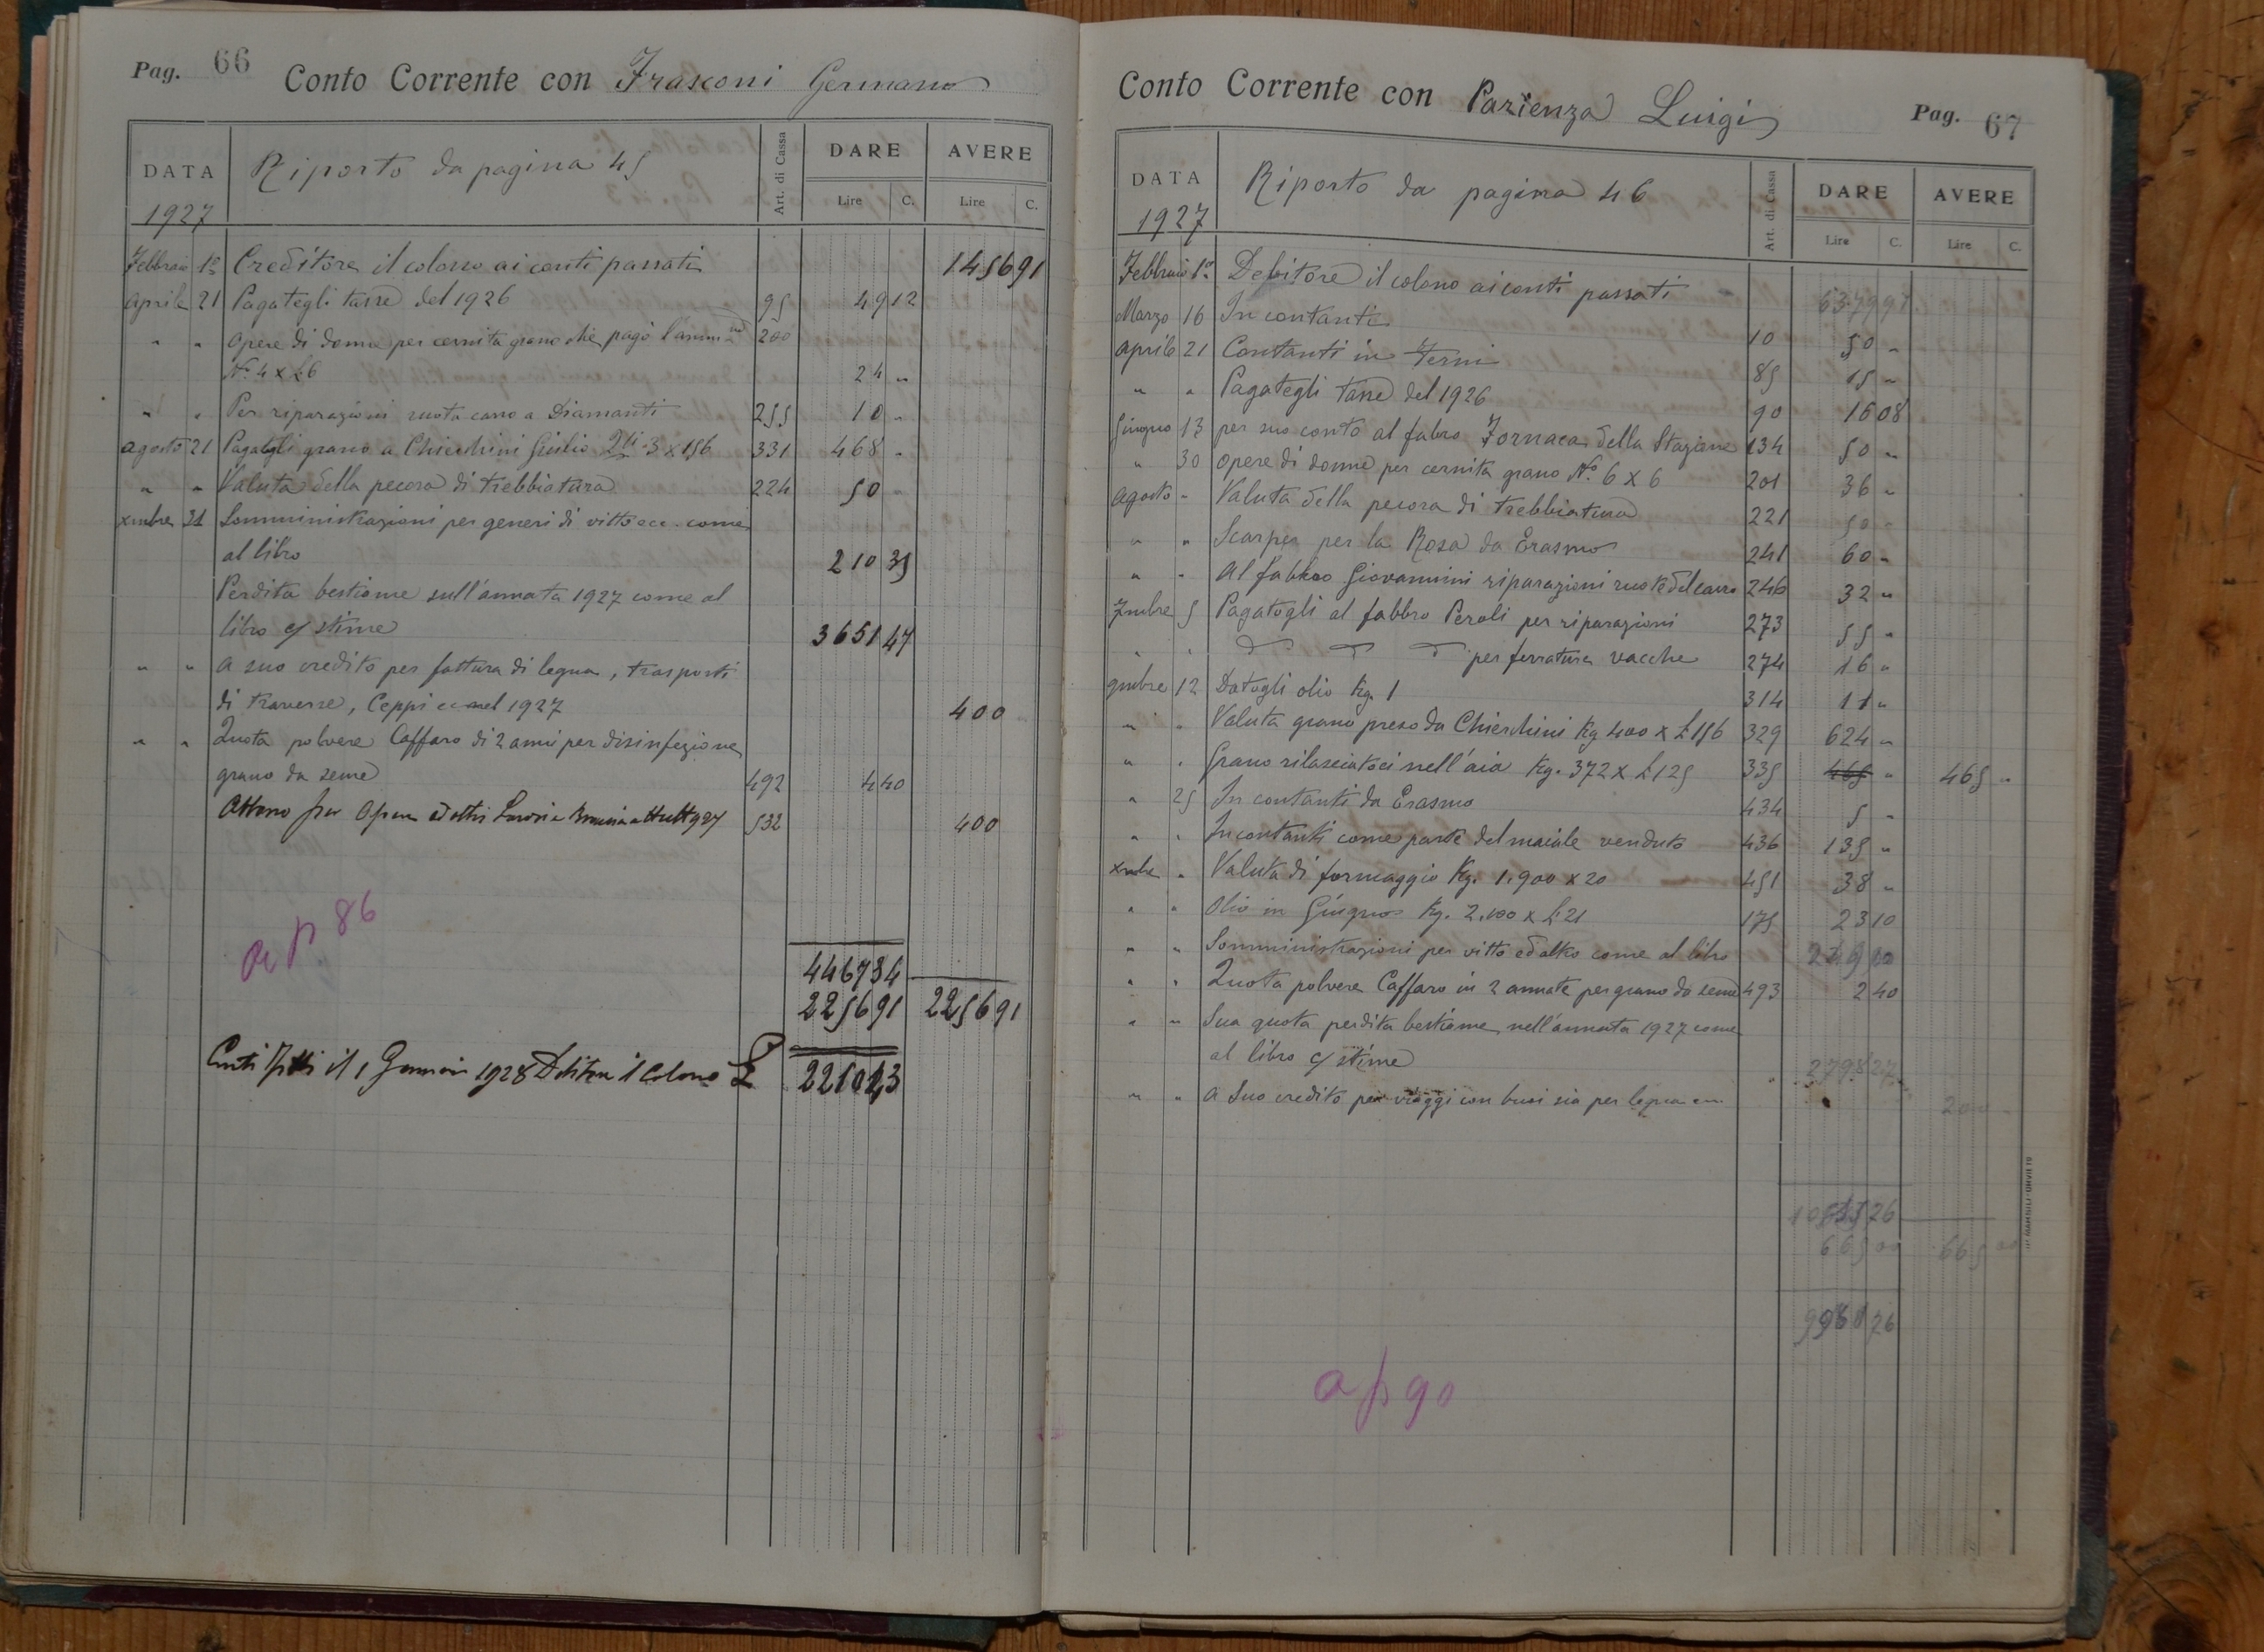 Pag. 66
Conto Corrente con Frasconi Germano
DATA
1927
Riporto da pagina 45
Art. di Cassa
DARE
AVERE
Lire C. Lire C.
Febbraio 1º Creditore il colono ai conti passati 1456 91
Aprile 21 Pagategli tasse del 1926 95 49 12
" " Opere di donne per cernita grano che pagò l'ammne 200
Nº 4 x £6 24 "
" " Per riparazioni ruota carro a Diamanti 255 10 "
Agosto 21 Pagategli grano a Chierchini Giulio Qli 3 x 156 331 468 "
" " Valuta della pecora di trebbiatura 224 50 "
Xmbre 31 Somministrazioni per generi di vitto ecc. come
al libro 210 35
Perdita bestiame sull'annata 1927 come al
libro c/ stime 3651 47
" " A suo credito per fattura di legna, trasporti
di traverse, Ceppi ec nel 1927 400
" " Quota polvere Caffaro di 2 anni per disinfezione
grano da seme 492 4 40
per Opere 532 400
a p. 86
4467 34
2256 91 2256 91
Conti fatti il 1 Gennaio 1928 Debitore il Colono £ 2210 43
Conto Corrente con Pazienza Luigi
Pag. 67
DATA
1927
Riporto da pagina 46
Art. di Cassa
DARE
AVERE
Lire C. Lire C.
Febbraio 1º Debitore il colono ai conti passati 6379 91
Marzo 16 In contanti 10 50 "
Aprile 21 Contanti in Terni 85 15 "
" " Pagategli tasse del 1926 90 16 08
Giugno 13 per suo conto al fabro Fornaca della Stazione 134 50 "
" 30 Opere di donne per cernita grano Nº 6 x 6 201 36 "
Agosto " Valuta della pecora di trebbiatura 221 50 "
" " Scarpe per la Rosa da Erasmo 241 60 "
" " Al fabbro Giovannini riparazioni ruote del carro 246 32 "
7mbre 5 Pagatogli al fabbro Peroli per riparazioni 273 55 "
" " per ferratura vacche 274 16 "
9mbre 12 Datogli olio Kg. 1 314 11 "
" " Valuta grano preso da Chierchini Kg 400 x £ 156 329 624 "
" " Grano rilasciatoci nell'aia Kg. 372 x £ 125 335 465 " 465 "
" 25 In contanti da Erasmo 434 5 "
" " In contanti come parte del maiale venduto 436 135 "
Xmbre " Valuta di formaggio Kg. 1.900 x 20 451 38 "
" " Olio in Giugno Kg. 2.100 x £ 21 175 23 10
" " Somministrazioni per vitto ed altro come al libro
" " Quota polvere Caffaro in 2 annate per grano da seme 493 2 40
" " Sua quota perdita bestiame nell'annata 1927 come
al libro c/ stime 2798 27
" " A suo credito per viaggi con buoi sia per legna 200 "
26
665 00 665 00
76
a p 90